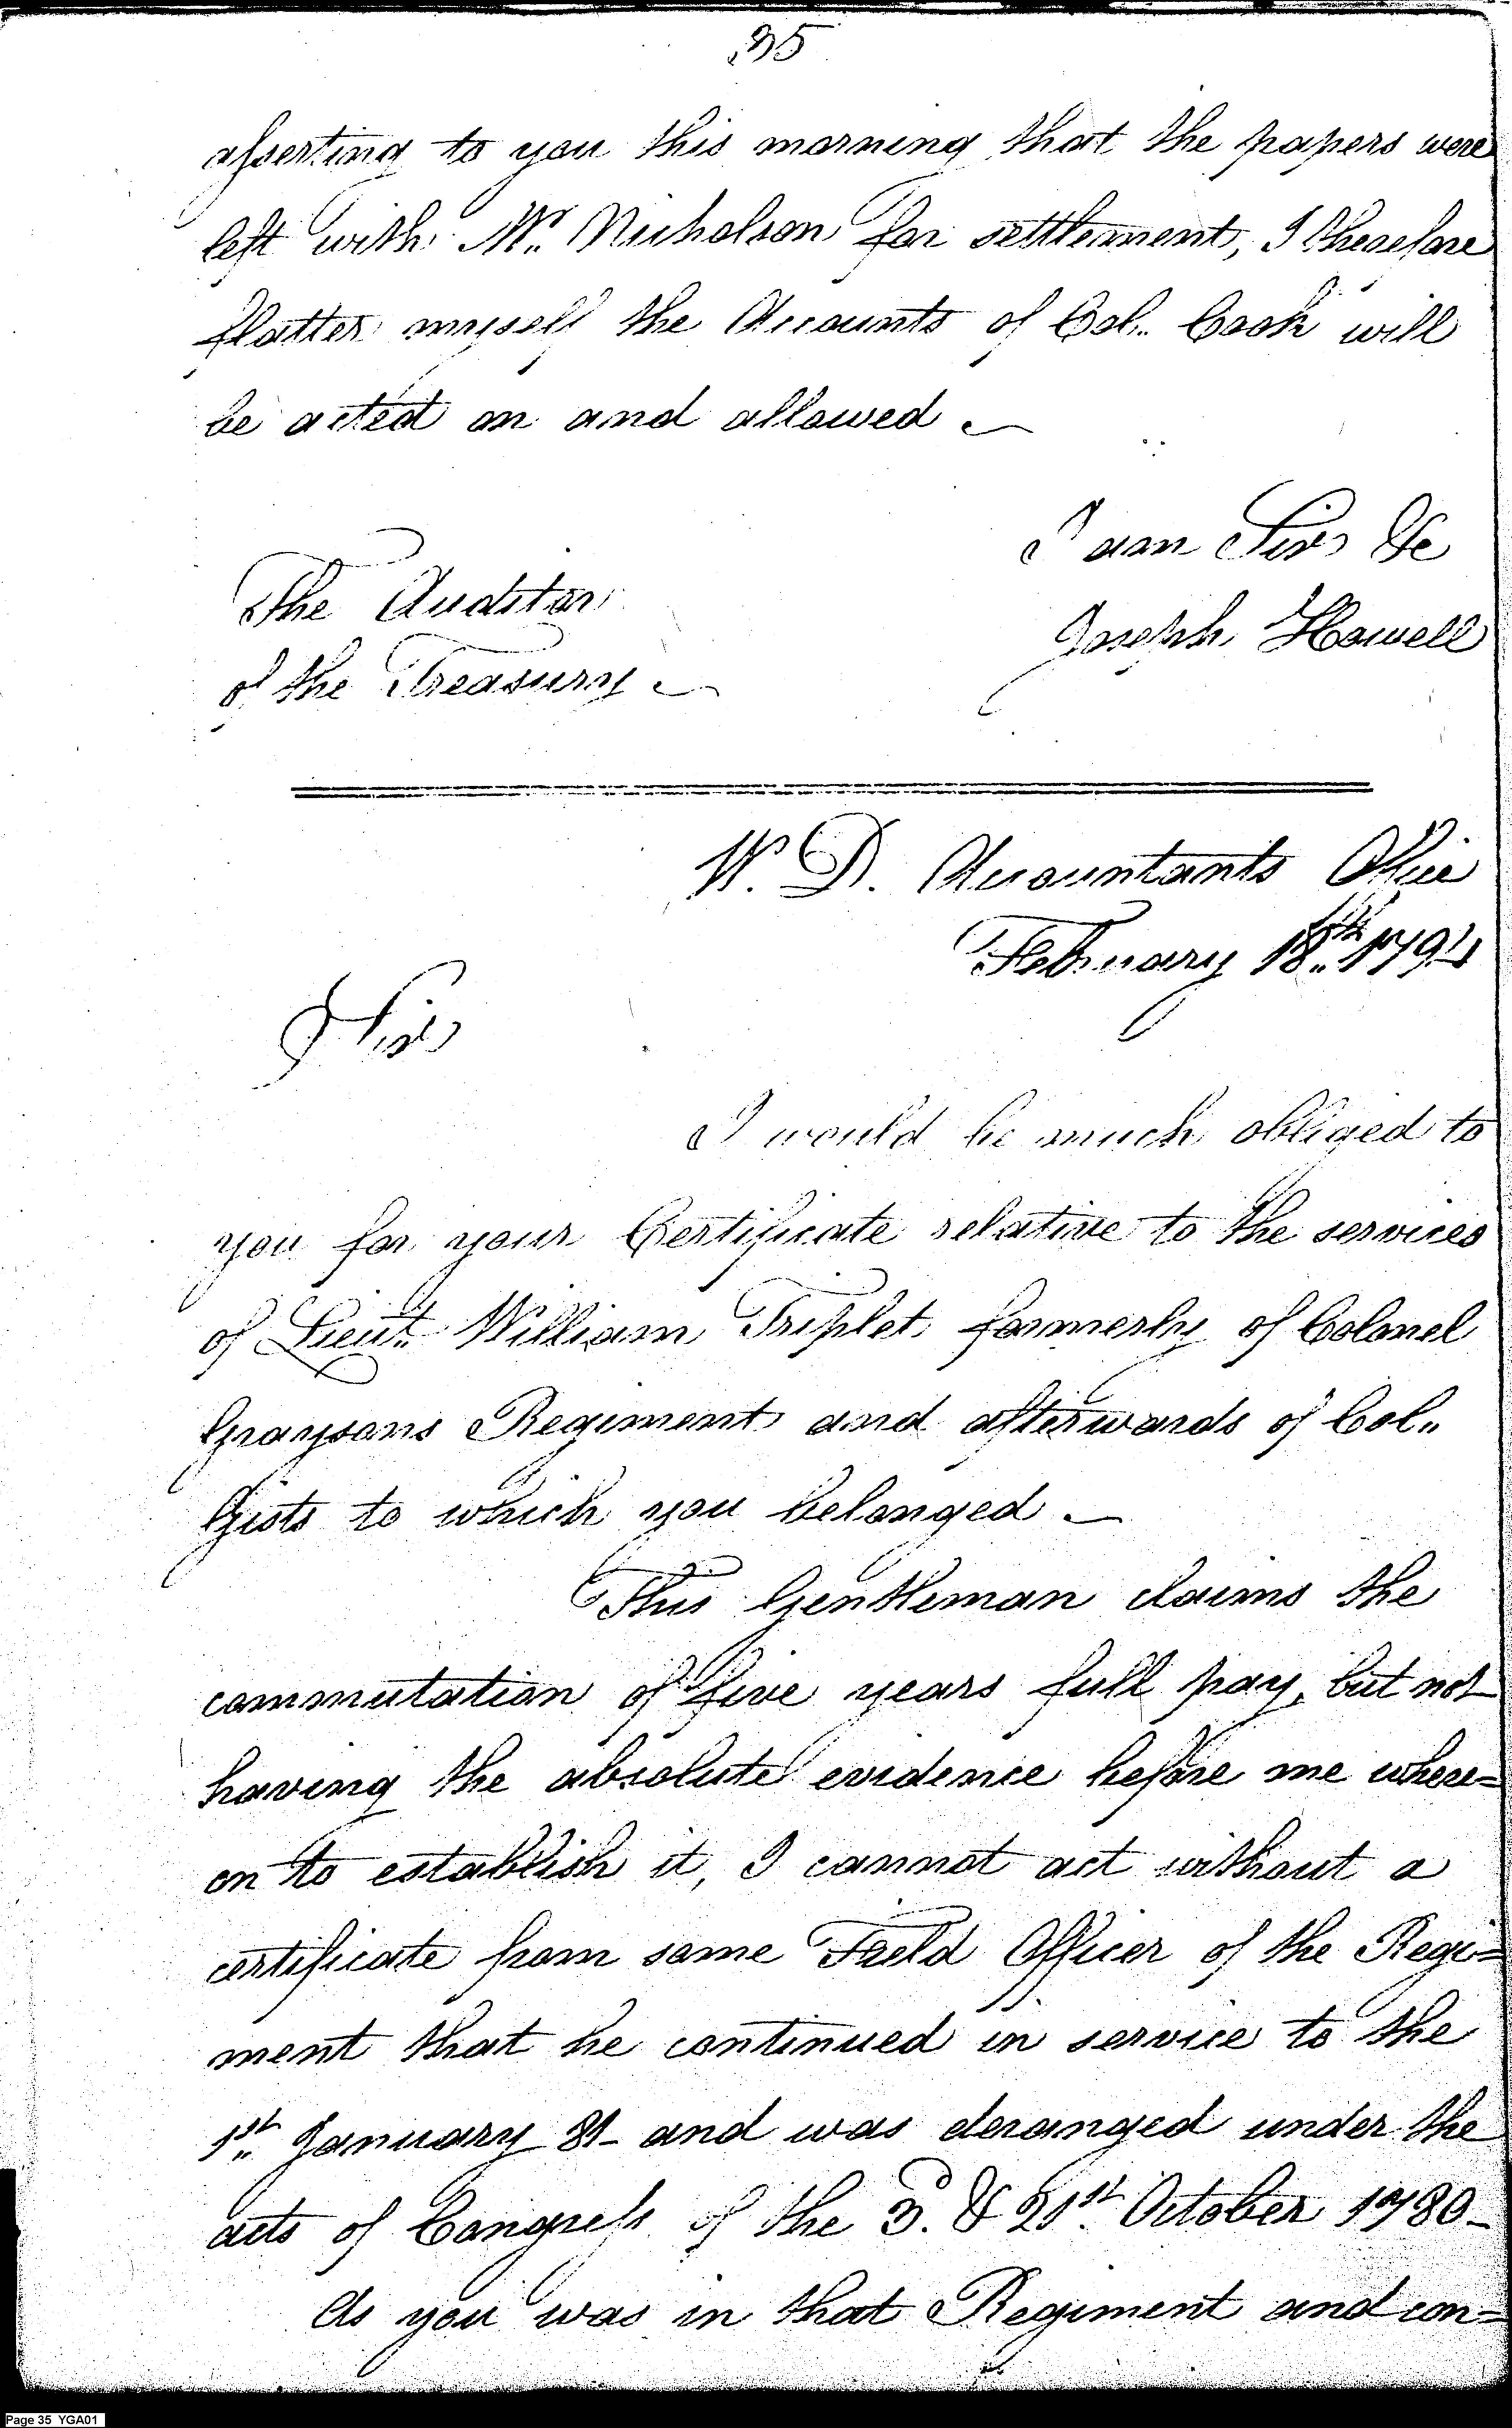 35
asserting to you this morning that the papers were
left with Mr. Nicholson for settlement, I therefore
flatter myself the Accounts of Col. Cook will
be acted on and allowed
I am Sir &c
Joseph Howell
The Auditor
of the Treasury
W. D. Accountants Office
February 18th 1794
Sir
I would be much obliged to
you for your Certificate relative to the services
of Lieut. William Triplet formerly of Colonel
Graysons Regiment and afterwards of Col.
Gists to which you belonged
This Gentleman claims the
commutation of five years full pay, but not
having the absolute evidence before me where=
on to establish it, I cannot act without a
certificate from some Field Officer of the Regi=
ment that he continued in service to the
1st January 81 and was deranged under the
acts of Congress of the 3d. & 21st October 1780
As you was in that Regiment and con=
Page 35 YGA01